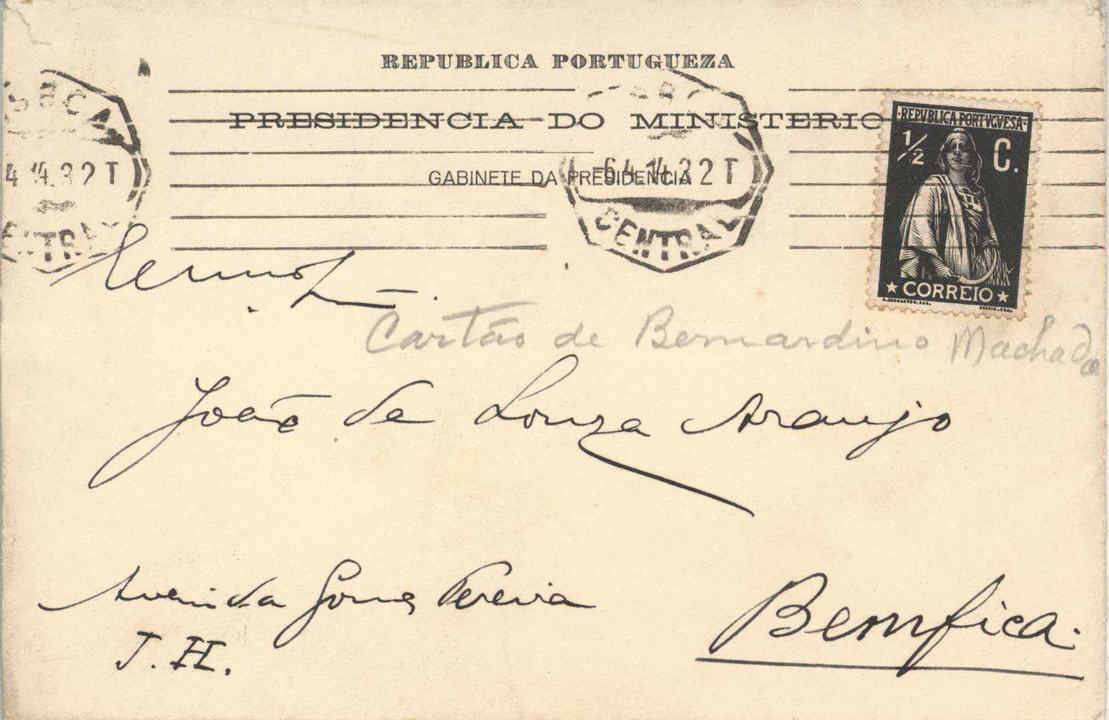 REPUBLICA PORTUGUEZA
PRESIDENCIA DO MINISTERIO
GABINETE DA PRESIDENCIA
-6.4.14.3 2 T
CENTRAL
4.14.3 2 T
REPVBLICA PORTVGVESA
½ C.
CORREIO
Cartão de Bernardino Machado
João de Souza Araujo
Avenida Gomes Pereira
J. H.
Bemfica.